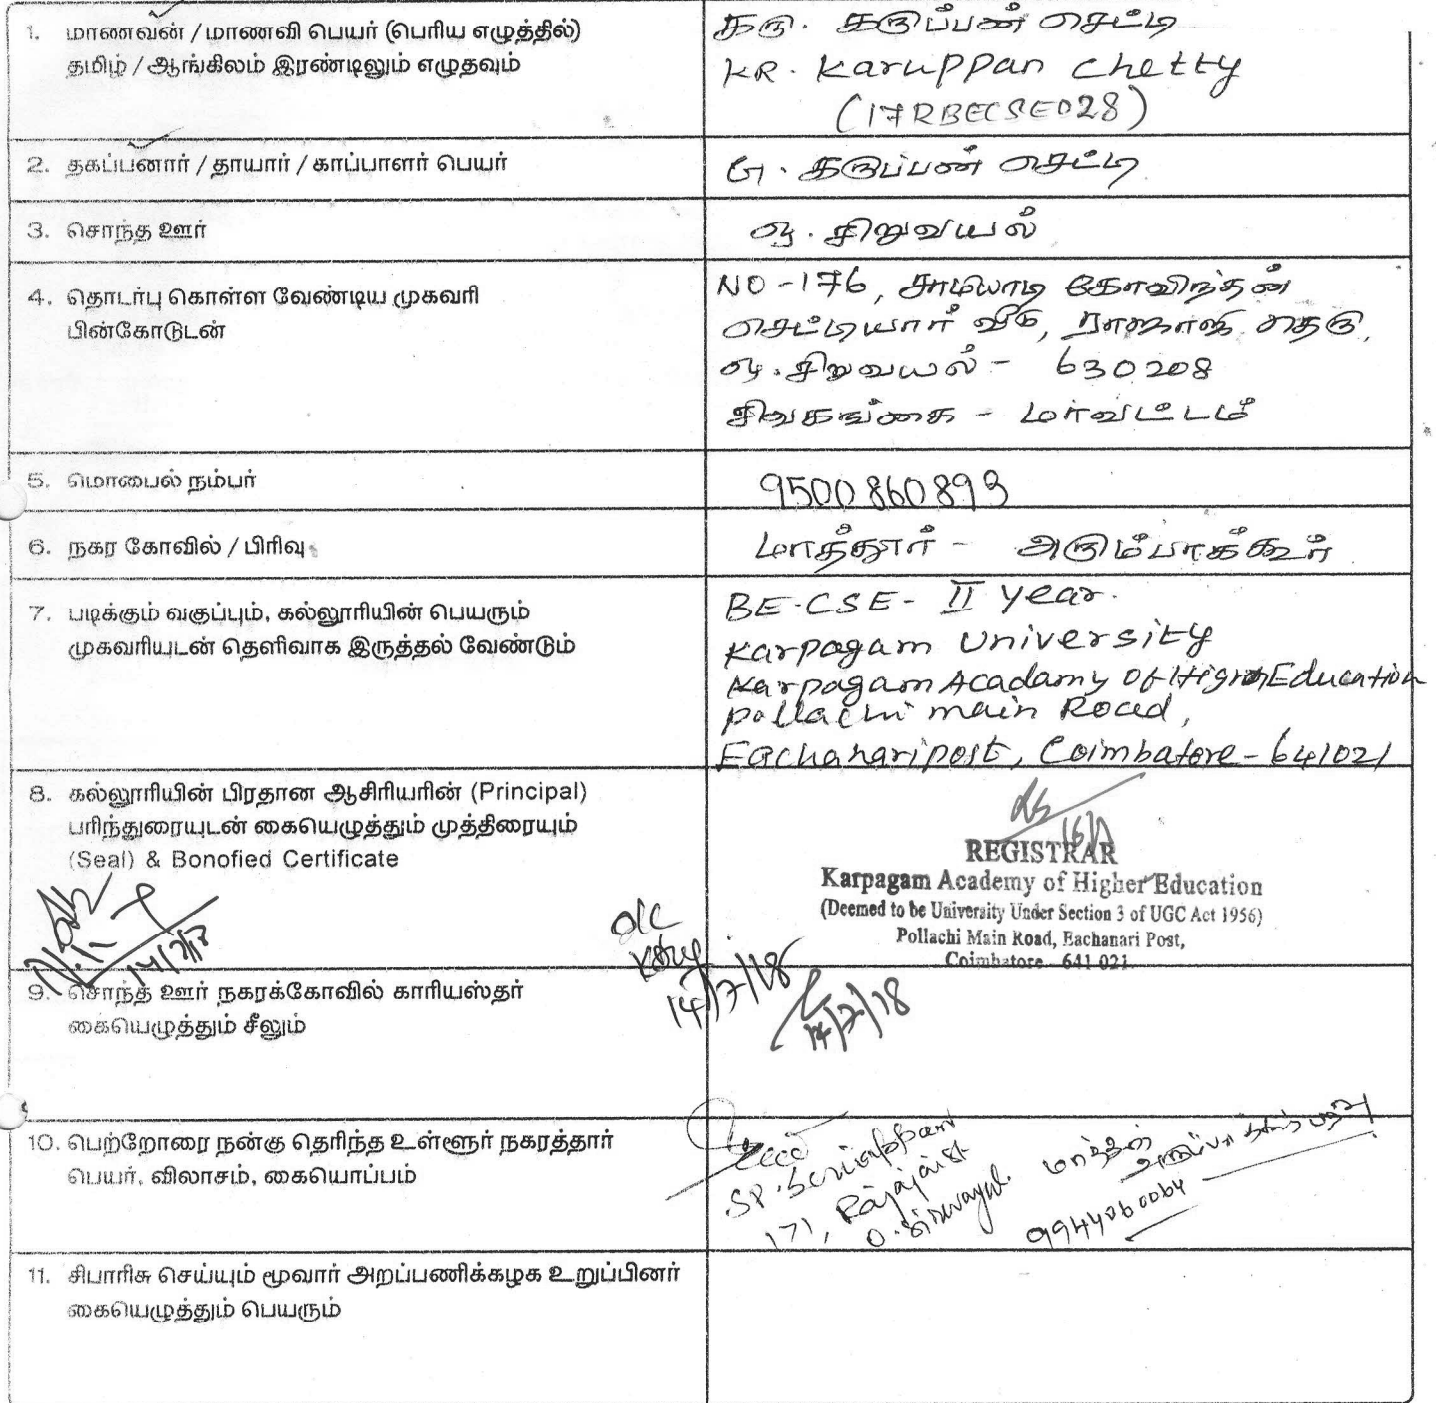 1. மாணவன் / மாணவி பெயர் (பெரிய எழுத்தில்)
தமிழ் / ஆங்கிலம் இரண்டிலும் எழுதவும்
கரு. கருப்பண் செட்டி
KR. Karuppan Chetty
(17RBECSE028)
2. தகப்பனார் / தாயார் / காப்பாளர் பெயர்
கருப்பண் செட்டி
3. சொந்த ஊர்
சிறுவயல்
4. தொடர்பு கொள்ள வேண்டிய முகவரி
பின்கோடுடன்
NO - 176, சாமியாடி கோவிந்தன்
செட்டியார் வீடு, ராஜாஜி தெரு,
சிறுவயல் - 630208
சிவகங்கை - மாவட்டம்
5. மொபைல் நம்பர்
9500860893
6. நகர கோவில் / பிரிவு
மாத்தூர் - அரும்பாக்கூர்
7. படிக்கும் வகுப்பும், கல்லூரியின் பெயரும்
முகவரியுடன் தெளிவாக இருத்தல் வேண்டும்
BE-CSE- II year.
Karpagam University
Karpagam Acadamy Of Higher Education
pollachi main Road,
Eachanari post, Coimbatore - 641021
8. கல்லூரியின் பிரதான ஆசிரியரின் (Principal)
பரிந்துரையுடன் கையெழுத்தும் முத்திரையும்
(Seal) & Bonofied Certificate
REGISTRAR
Karpagam Academy of Higher Education
(Deemed to be University Under Section 3 of UGC Act 1956)
Pollachi Main Road, Eachanari Post,
Coimbatore 641 021
14/7/18
14/7/18
9. சொந்த ஊர் நகரக்கோவில் காரியஸ்தர்
கையெழுத்தும் சீலும்
10. பெற்றோரை நன்கு தெரிந்த உள்ளூர் நகரத்தார்
பெயர், விலாசம், கையொப்பம்
SP.
171, Rajaji St
O. Siruvayal.
9944060064
11. சிபாரிசு செய்யும் மூவார் அறப்பணிக்கழக உறுப்பினர்
கையெழுத்தும் பெயரும்